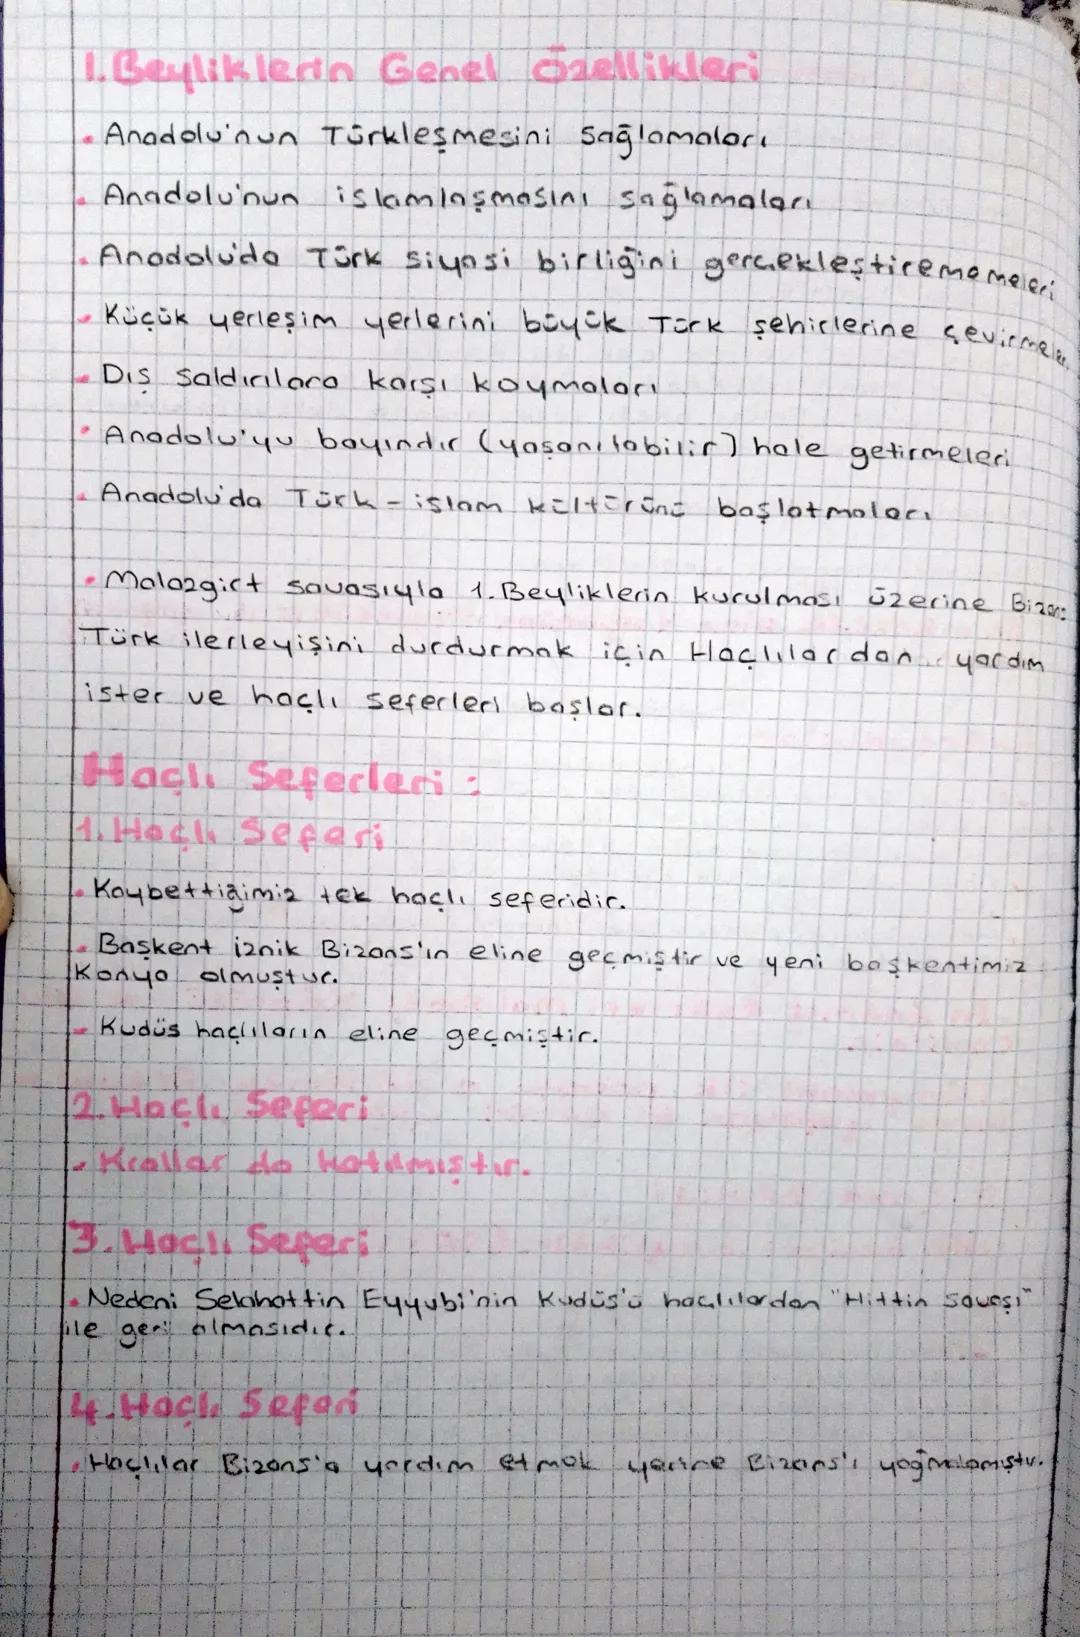 1. Beyliklerin Genel Özellikleri
• Anadolu'nun Türkleşmesini Sağlamaları
• Anadolu'nun islamlaşmasını sağlamaları
• Anadolu'da Türk siyasi birliğini gerçekleştirememeleri
• Küçük yerleşim yerlerini büyük Türk şehirlerine çevirmeler
• Dış saldırılara karşı koymaları
• Anadolu'yu bayındır (yaşanılabilir) hale getirmeleri
• Anadolu'da Türk - islam kültürünü başlatmaları
• Malazgirt savaşıyla 1. Beyliklerin kurulması üzerine Bizans
Türk ilerleyişini durdurmak için Haçlılardan yardım
ister ve haçlı seferleri başlar.
Haçlı Seferleri :
1. Haçlı Seferi
• Kaybettiğimiz tek haçlı seferidir.
• Başkent iznik Bizans'ın eline geçmiştir ve yeni başkentimiz
Konya olmuştur.
• Kudüs haçlıların eline geçmiştir.
2. Haçlı Seferi
• Krallar da katılmıştır.
3. Haçlı Seferi
• Nedeni Selahattin Eyyubi'nin Kudüs'ü haçlılardan "Hittin savaşı"
ile geri almasıdır.
4. Haçlı Seferi
• Haçlılar Bizans'a yardım etmek yerine Bizans'ı yağmalamıştır.